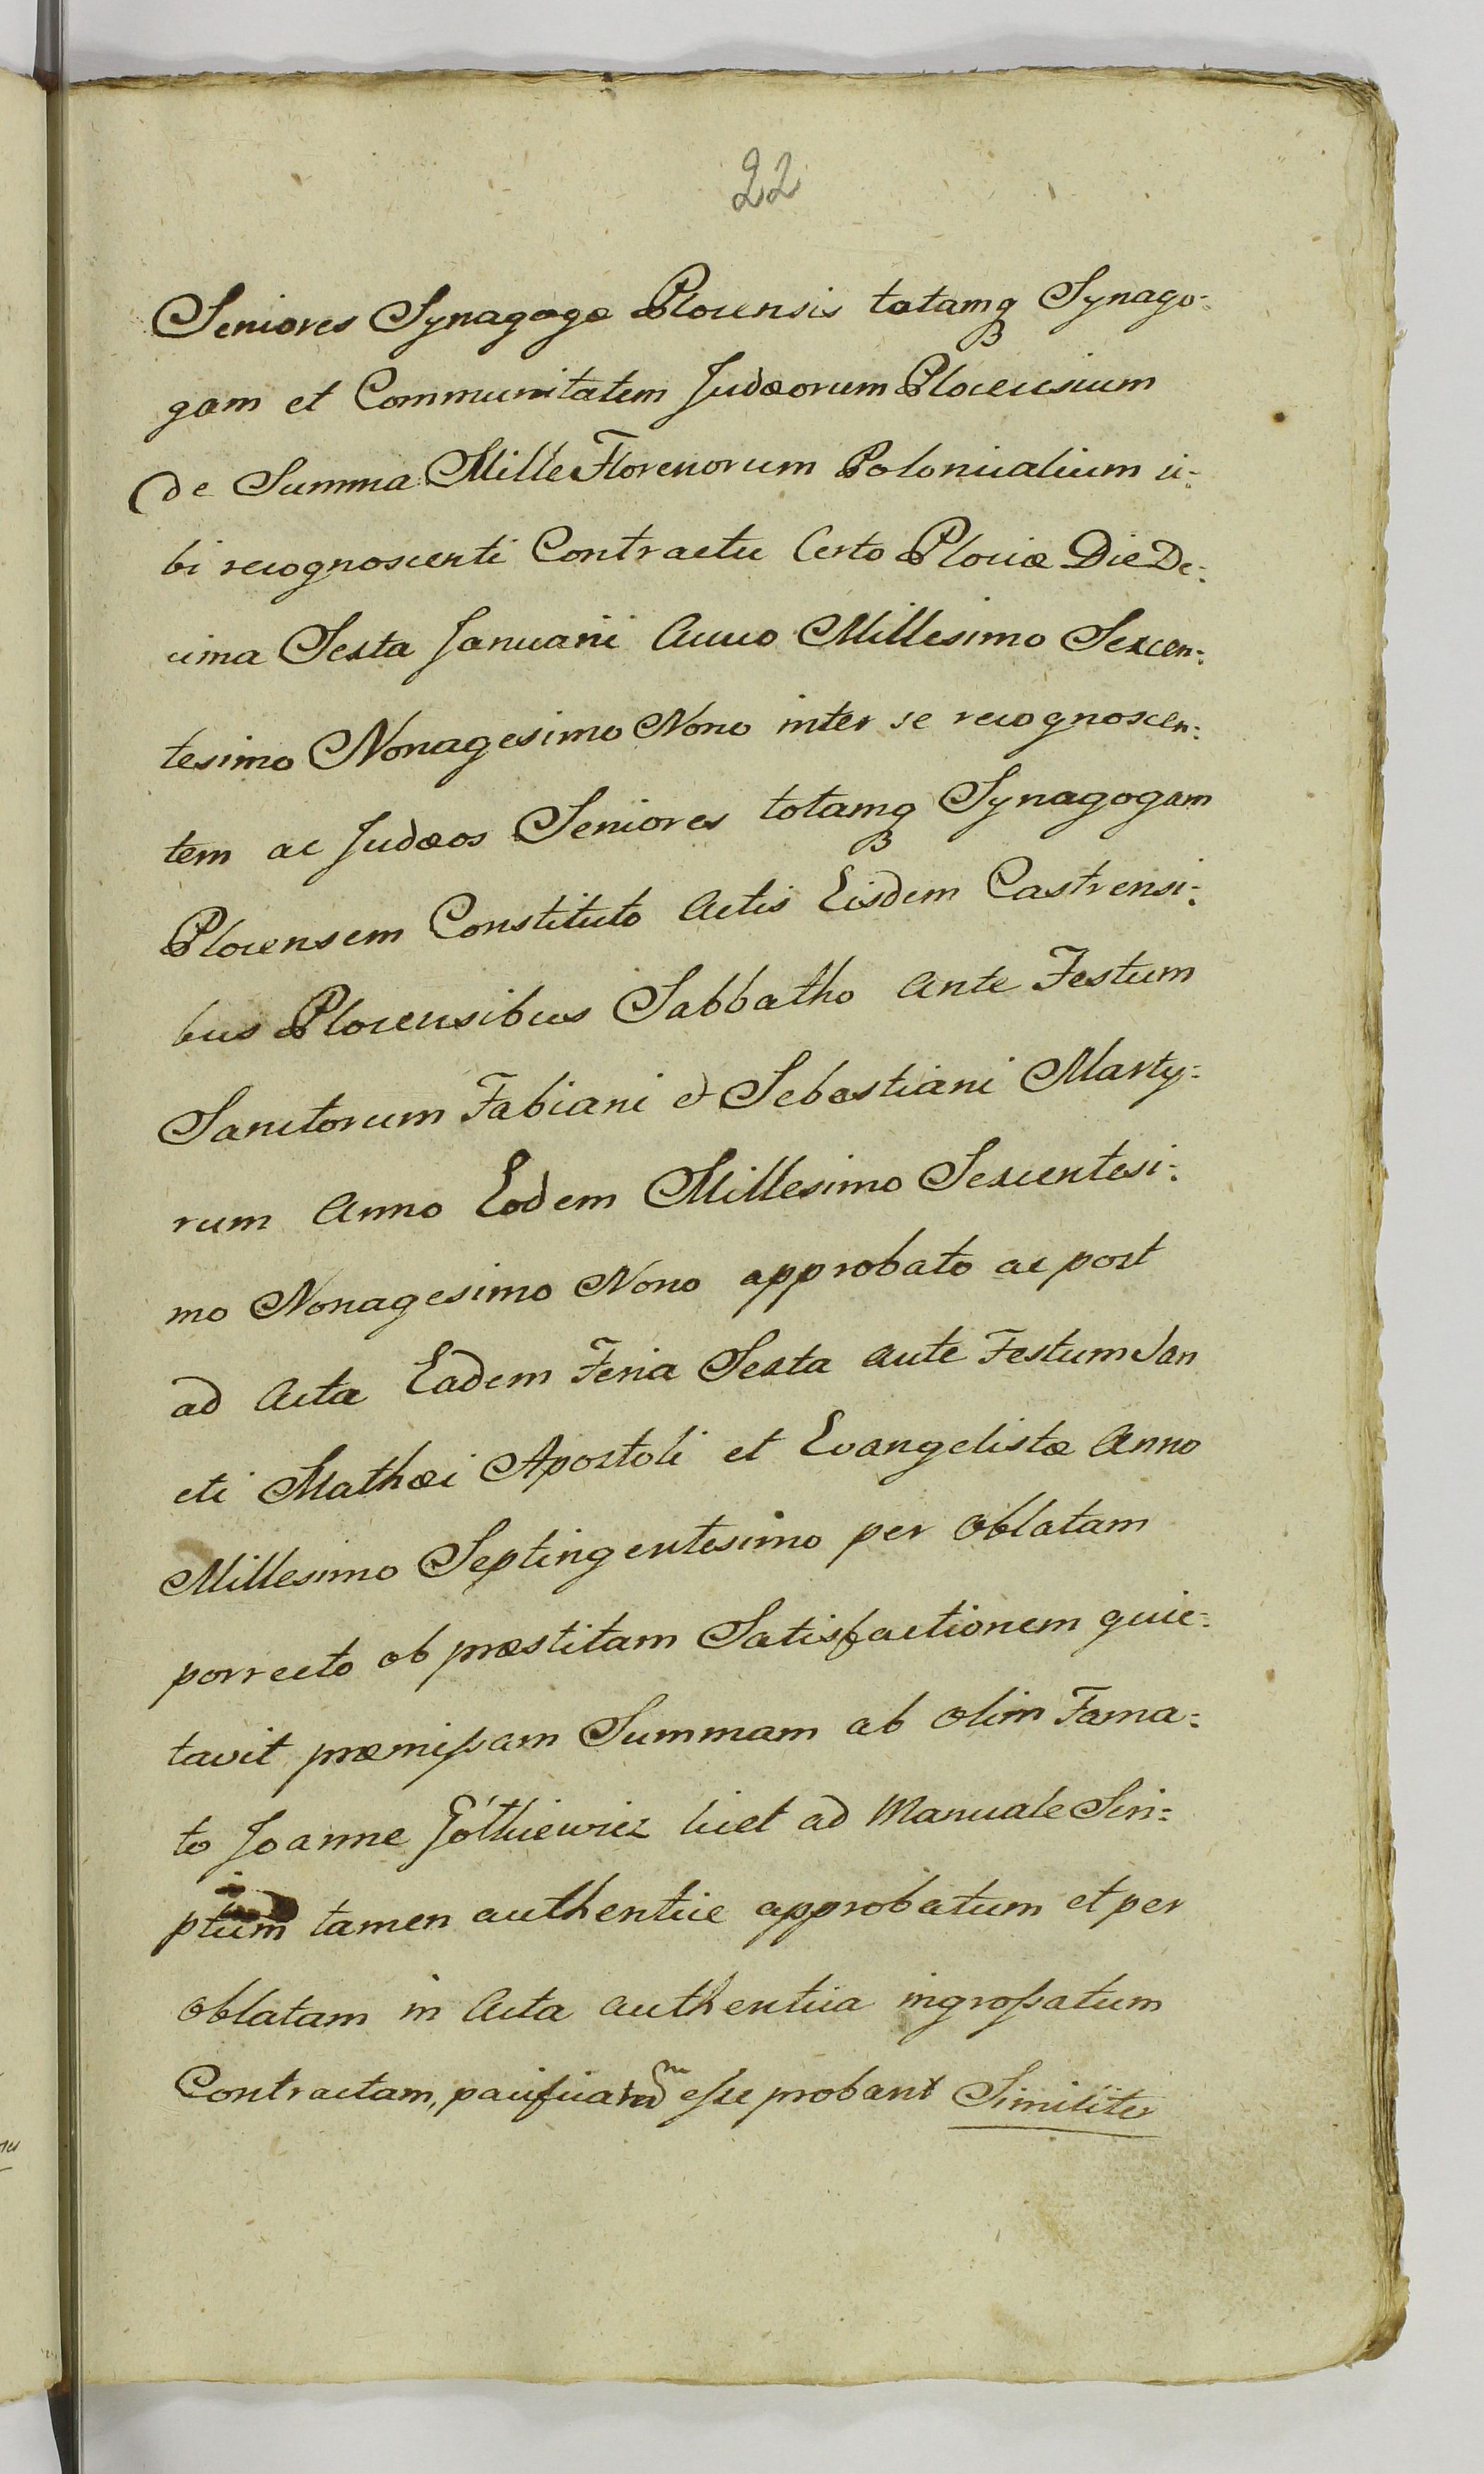 22
Seniores Synagogæ Plocensis totamqꝫ Synago-
gam et Communitatem Judæorum Plocensium
de Summa Mille Florenorum Polonicalium si-
bi recognoscenti Contractu Certo Plociæ Die De-
cima Sexta Januarii Anno Millesimo Sexcen-
tesimo Nonagesimo Nono inter se recognoscen-
tem ac Judæos Seniores totamqꝫ Synagogam
Plocensem Constituto Actis Eisdem Castrensi-
bus Plocensibus Sabbatho Ante Festum
Sanctorum Fabiani et Sebastiani Marty-
rum Anno Eodem Millesimo Sexcentesi-
mo Nonagesimo Nono approbato ac post
ad Acta Eadem Feria Sexta Ante Festum San
cti Mathæi Apostoli et Evangelistæ Anno
Millesimo Septingentesimo per Oblatam
porrecto ob præstitam Satisfactionem quie-
tavit præmissam Summam ab olim Fama-
to Joanne licet ad Manuale Scri-
ptum tamen authentice approbatum et per
Oblatam in Acta Authentica ingrossatum
Contractam, esse probant Similiter